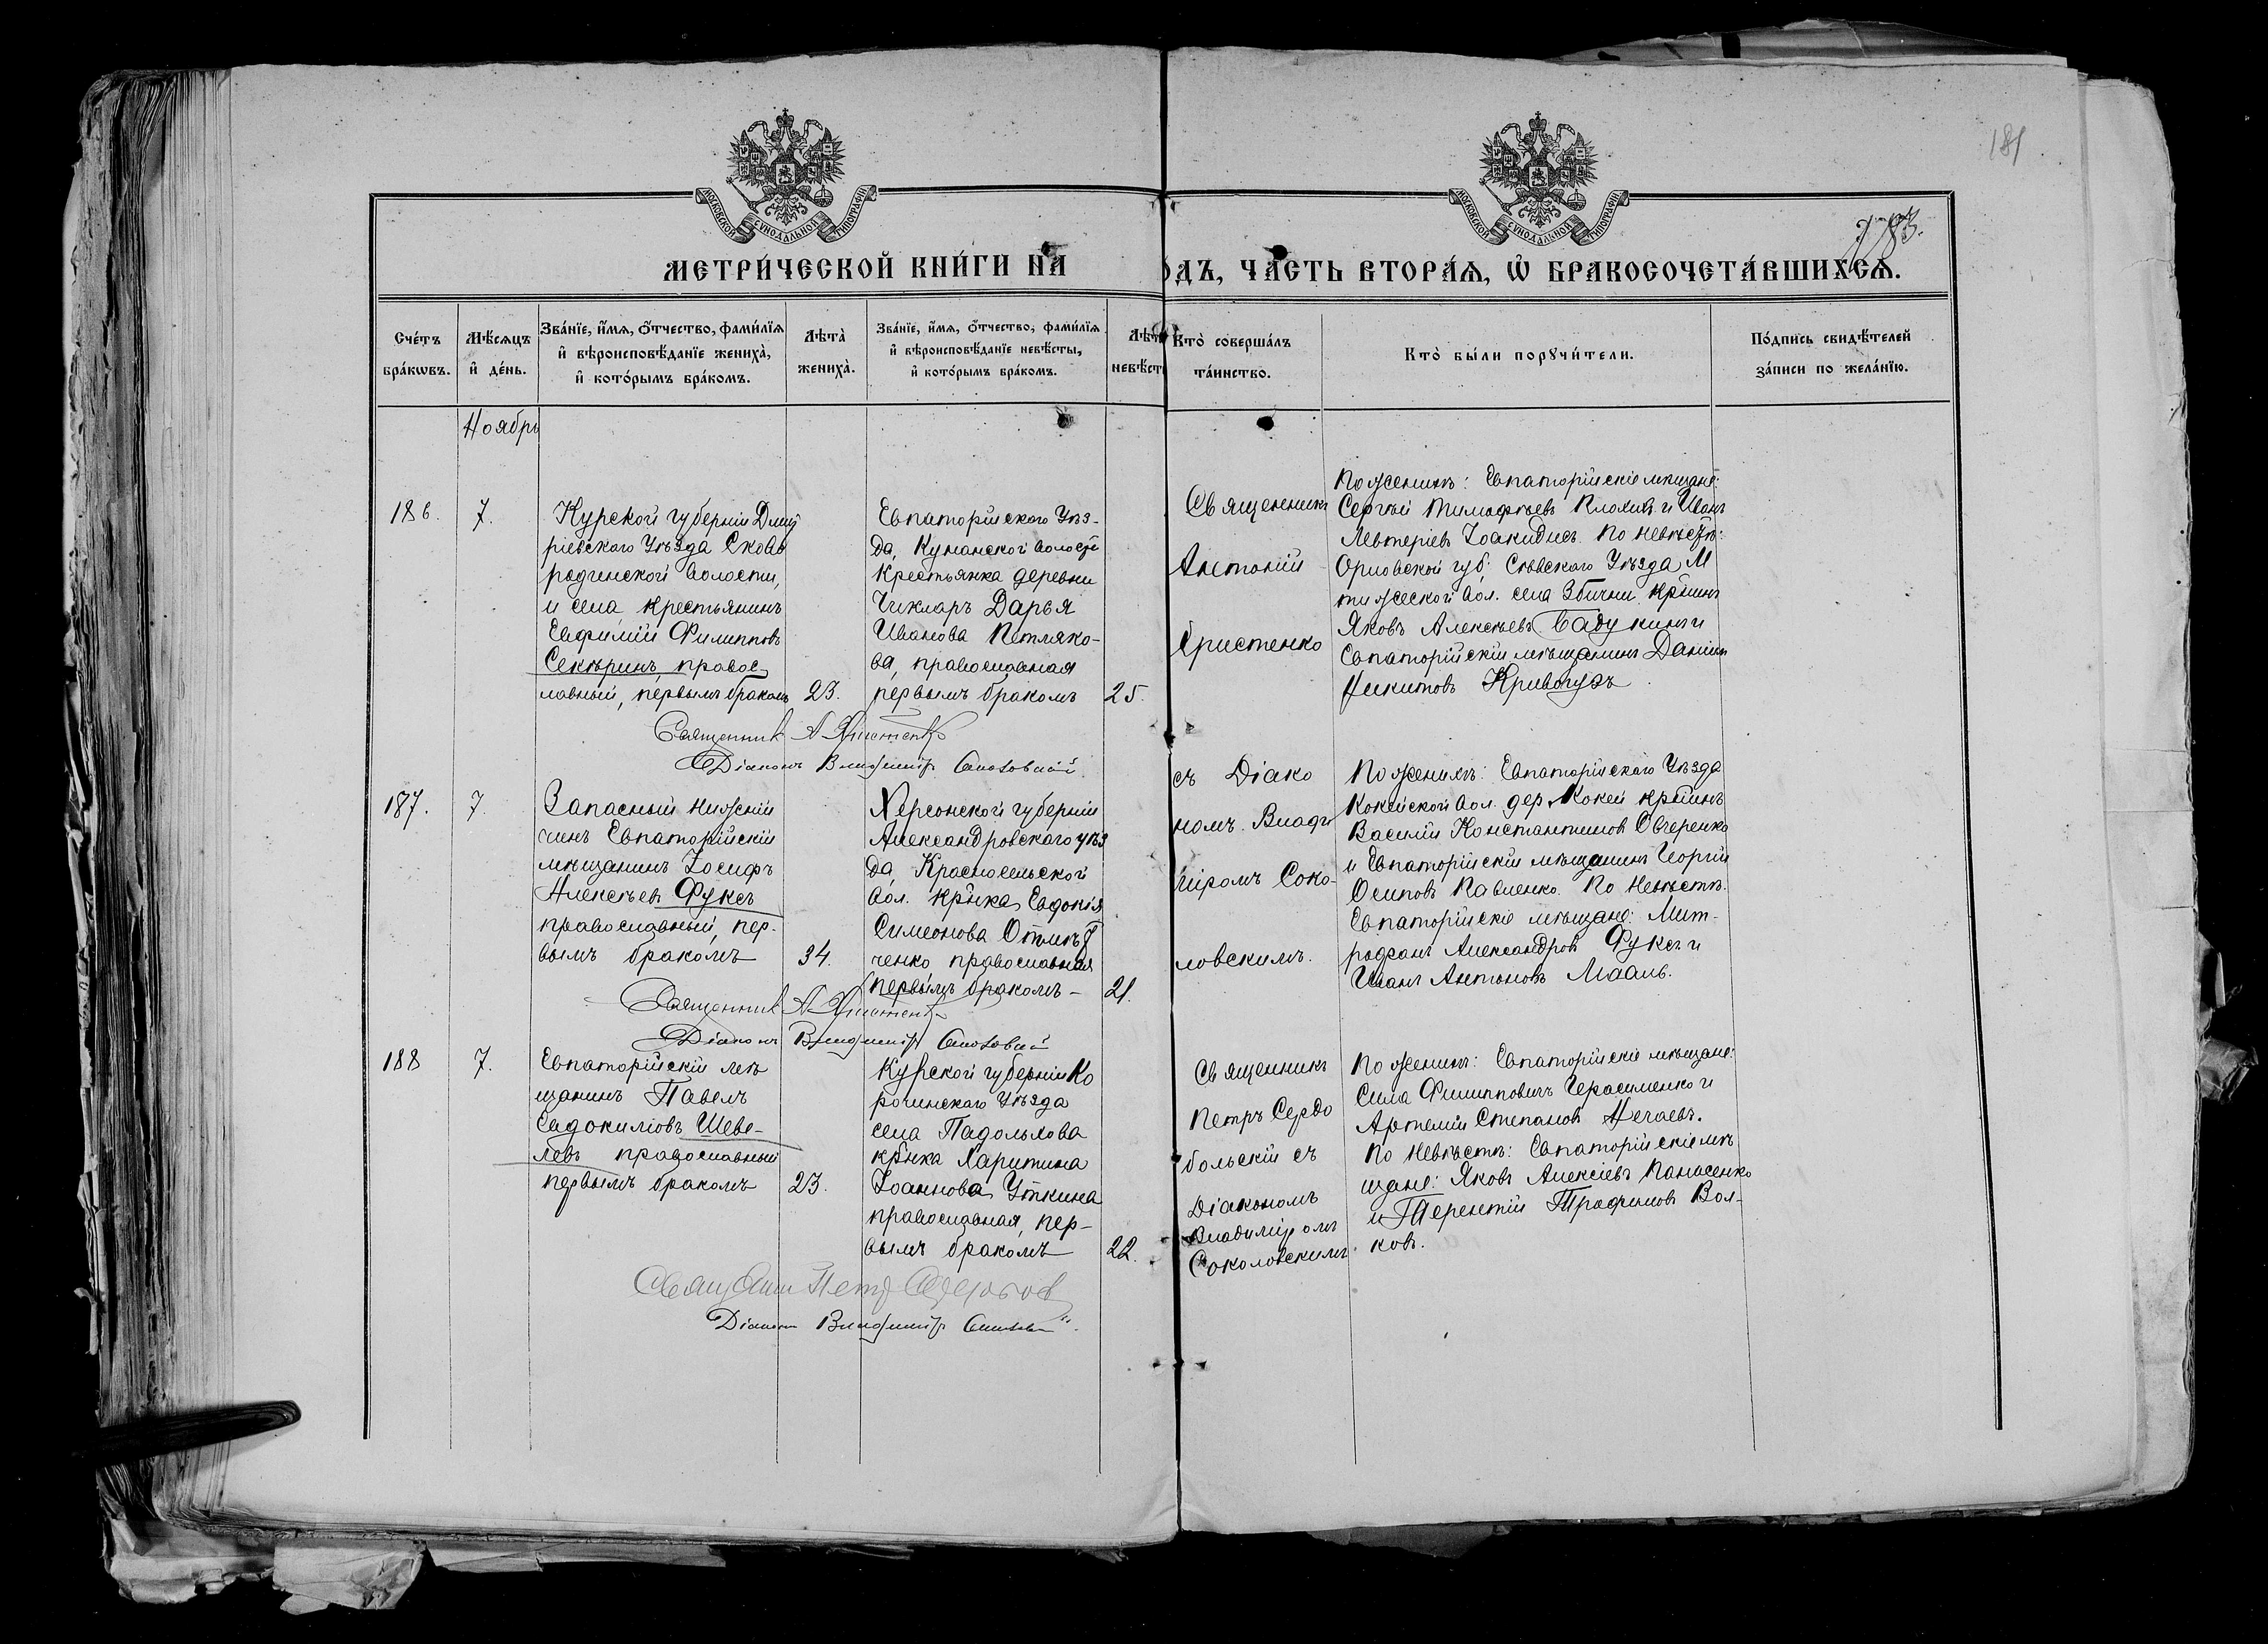 181
783.
МОСКОВСКОЙ СѴНОДАЛЬНОЙ ТИПОГРАФІИ
МОСКОВСКОЙ СѴНОДАЛЬНОЙ ТИПОГРАФІИ
МЕТРИ́ЧЕСКОЙ КНИ́ГИ НА
ОДЪ, ЧАСТЬ ВТОРА́Ѧ, Ѡ҆ БРАКОСОЧЕТА́ВШИХСѦ.
Сче́тъ
бра́кѡвъ.
Мѣ́сяцъ
и҆ де́нь.
Зва́нїе, и҆́мѧ, ѻ҆́тчество, фами́лїѧ
и҆ вѣроисповѣ́данїе жениха̀,
и҆ кото́рымъ бра́комъ.
Лѣта̀
жениха̀.
Зва́нїе, и҆́мѧ, ѻ҆́тчество, фами́лїѧ
и҆ вѣроисповѣ́данїе невѣ́сты,
и҆ кото́рымъ бра́комъ.
Лѣт
невѣ́ст
Кто̀ соверша́лъ
та́инство.
Кто̀ бы́ли порꙋчи́тели.
По́дпись свидѣ́телей
за́писи по жела́нїю.
Ноябрь
186.
7.
Курской губерніи Дми
ріевского Уѣзда Сково
родинской волости,
и села, крестьянинъ
Евфимій Филипповъ
Секѣринъ, правос
лавный, первымъ бракомъ
23.
Евпаторійского Уѣз-
да, Куманской волости
крестьянка деревни
Чикларъ Дарья
Иванова Петляко-
ва, православная
первымъ бракомъ
25.
Священникъ
Антоній
Христенко
По женихѣ: Евпаторійскіе мѣщане:
Сергѣй Тимофѣевъ Клохинъ и Иванъ
Левтеріевъ Іоакидисъ. По невѣстѣ:
Орловской губ. Сѣвского Уѣзда
вол. села Збични кр-нинъ
Яковъ Алексѣевъ и
Евпаторійскій мѣщанинъ Даніилъ
Никитовъ Кривогузъ
Священникъ А Христенко
Діаконъ Владиміръ Соколовскій
187.
7.
Запасный нижній
чинъ Евпаторійскій
мѣщанинъ Іосифъ
Алексѣевъ Фуксъ
православный, пер-
вымъ бракомъ
34.
Херсонской губерніи
Александровского уѣз
да, Красносельской
вол. кр-нка Евдокія
Симеонова
ченко православная
первымъ бракомъ –
21.
съ Діако
номъ. Влади
міромъ Соко-
ловскимъ.
По женихѣ: Евпаторійского Уѣзда
Кокейской вол. дер. Кокей кр-нинъ
Василій Константиновъ Овчеренко
и Евпаторійскій мѣщанинъ Георгій
Осиповъ Павленко. По невѣстѣ.
Евпаторійскіе мѣщане: Мит-
рофанъ Александровъ Фуксъ и
Иванъ Антоновъ Мааль.
Священникъ А Христенко
Діаконъ Владиміръ Соколовскій
188
7.
Евпаторійскій мѣ
щанинъ Павелъ
Евдокимовъ Шеве-
левъ православный
первымъ бракомъ
23.
Курской губерніи Ко
рочинского Уѣзда
села Подольхова
кр-нка Харитина
Іоаннова Уткина
православная, пер-
вымъ бракомъ
22.
Священникъ
Петръ Сердо
больскій съ
Діакономъ
Владиміромъ
Соколовскимъ
По женихѣ: Евпаторійскіе мѣщане:
Сила Филипповичъ Герасименко и
Артемій Степановъ Нечаевъ.
По невѣстѣ: Евпаторійскіе мѣ
щане: Яковъ Алексіевъ Панасенко
и Терентій Трофимовъ Вол-
ковъ.
Священникъ Петръ
Діаконъ Владиміръ Соколовскій